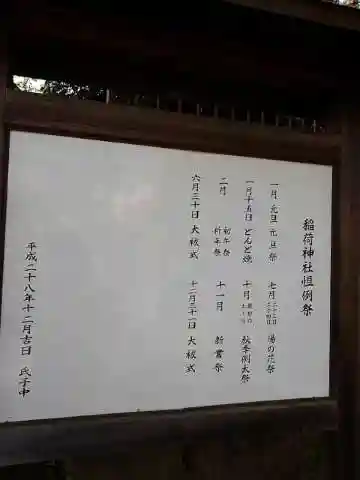 稲荷神社恒例祭
一月 元旦 元旦祭
一月十五日 どんど焼
二月 初午祭 祈年祭
六月三十日 大祓式
七月 湯の花祭
十月 秋季例大祭
十一月 新嘗祭
十二月三十一日 大祓式
平成二十八年十二月吉日 氏子中